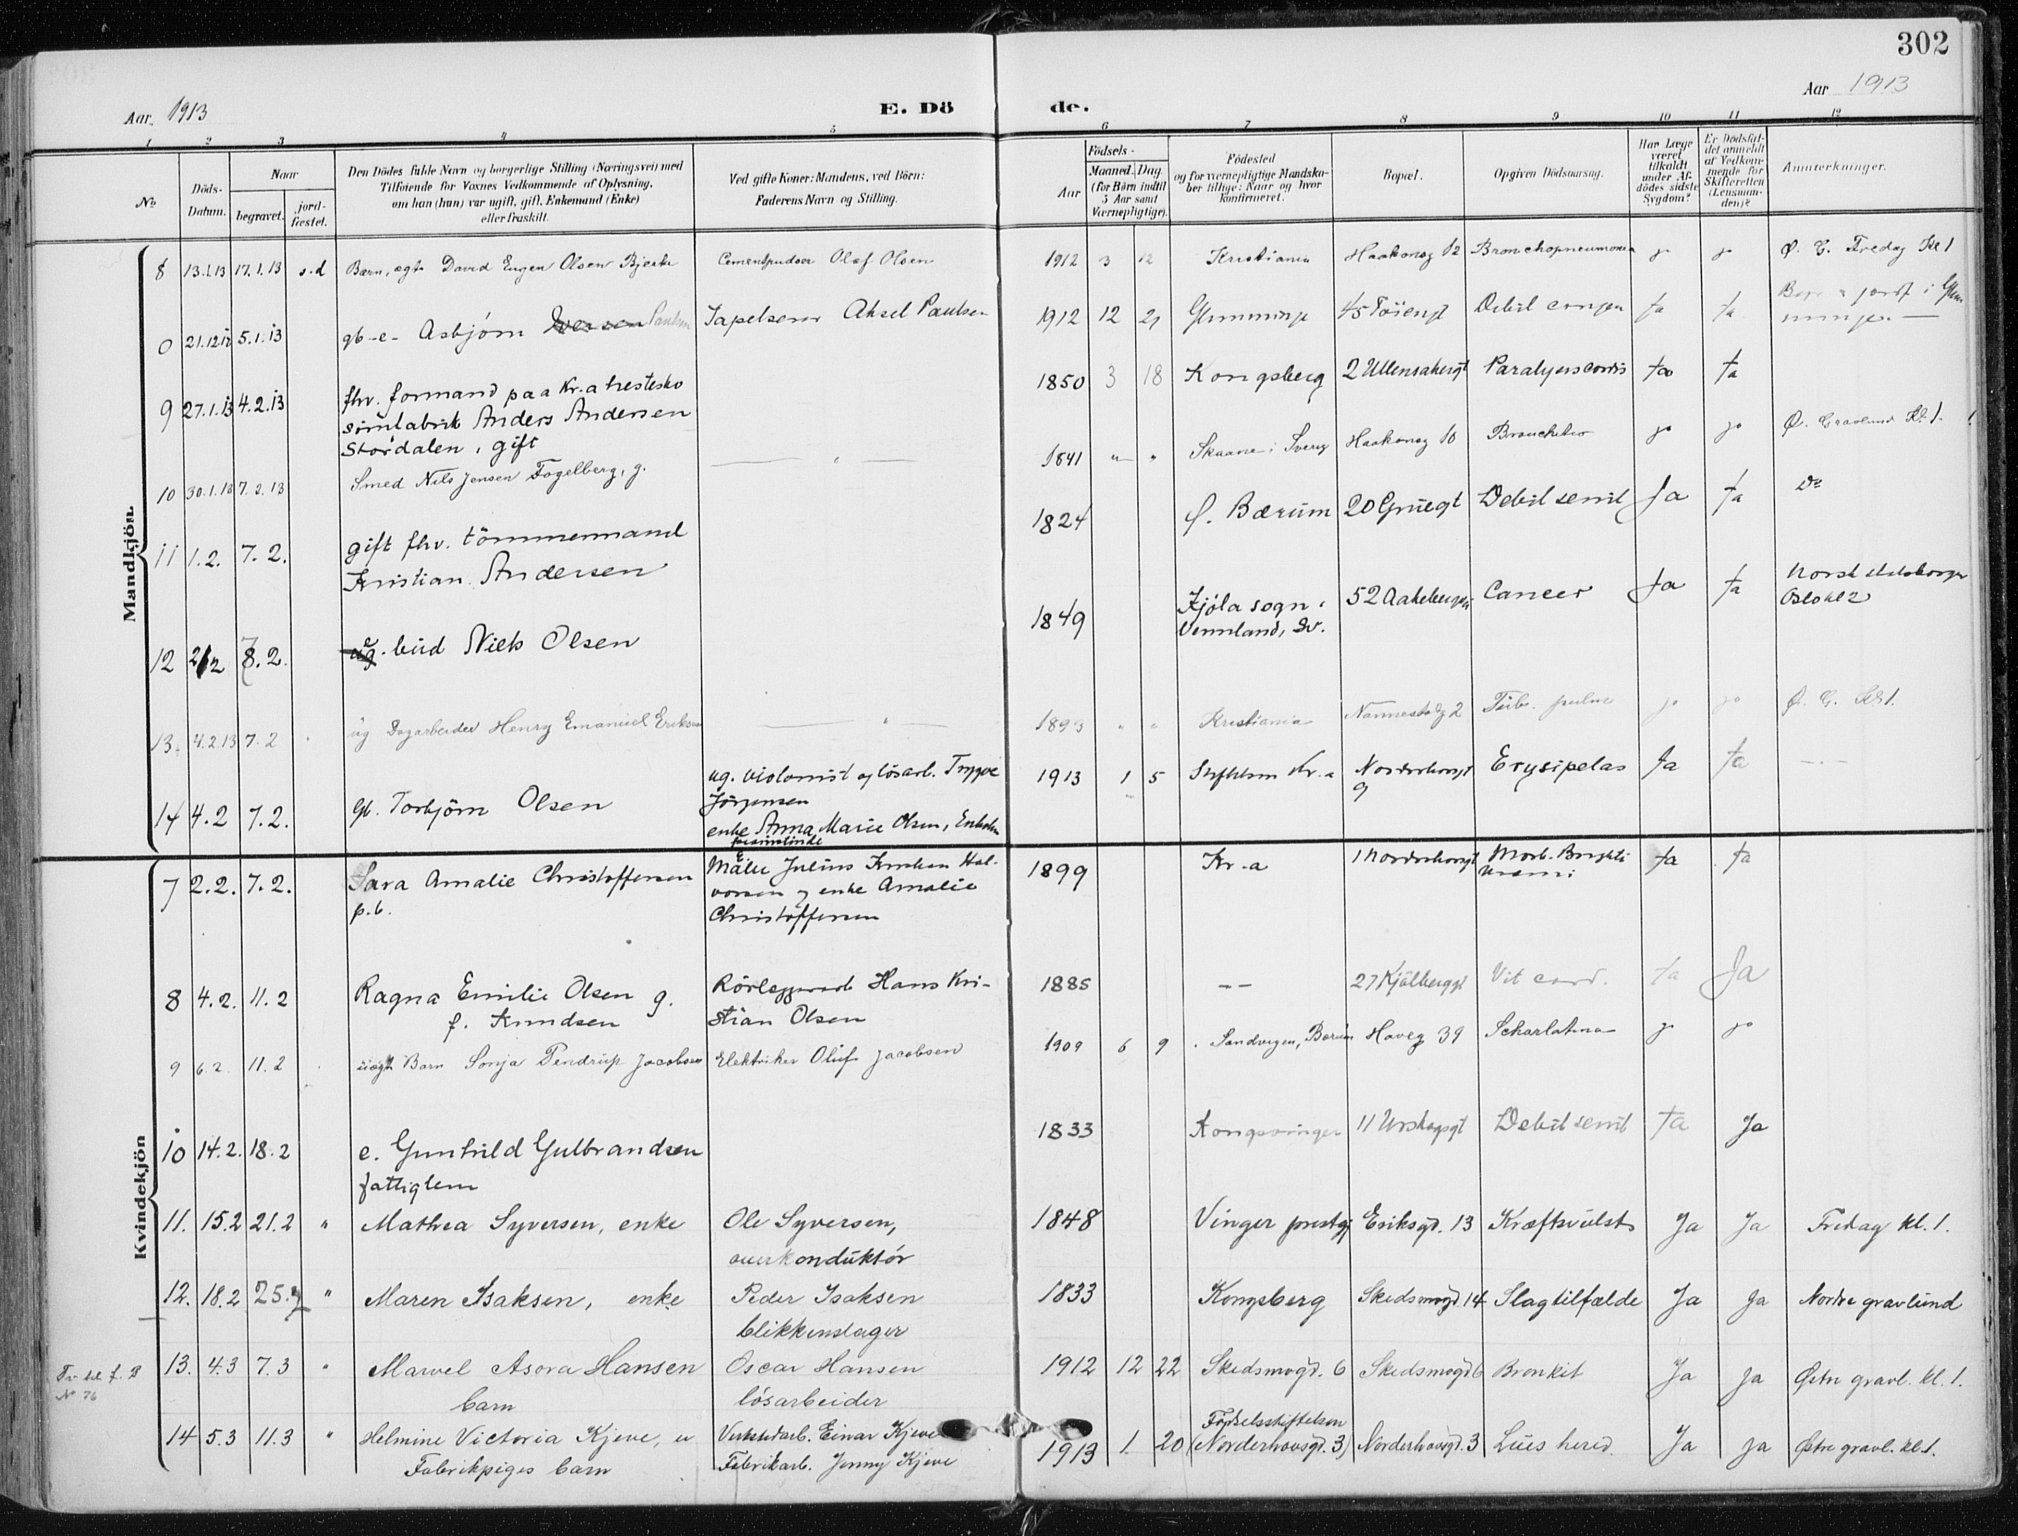 302
Aar 1913
E. Döde.
Aar 1913
1 2 3 4 5 6 7 8 9 10 11 12
No
Döds-Datum.
Naar
begravet.
jord-fæstet.
Den Dödes fulde Navn og borgerlige Stilling (Næringsvei) med
Tilföiende for Voxnes Vedkommende af Oplysning,
om han (hun) var ugift, gift, Enkemand (Enke)
eller fraskilt.
Ved gifte Koner: Mandens, ved Börn:
Faderens Navn og Stilling.
Födsels-
Aar
Maaned. Dag.
(for Börn indtil
5 Aar samt
Værnepligtige).
Födested
og for værnepligtige Mandska-
ber tillige: Naar og hvor
konfirmeret.
Bopæl.
Opgiven Dödsaarsag.
Har Læge
været
tilkaldt
under Af-
dödes sidste
Sygdom?
Er Dödsfal-
det anmeldt
af Vedkom-
mende for
Skifteretten
(Lensman-
den)?
Anmerkninger.
Mandkjön.
8 13.1.13 17.1.13 s.d Barn, ægte David Eugen Olsen Bjerke Cementpudser Olaf Olsen 1912 3 12 Kristiania Haakonsg 12 Bronchopneumonia jo jo Ø. G. Fredag Kl 1
0 21.12.12 5.1.13 gb-e- Asbjørn Iversen Paulsen Tapetserer Aksel Paulsen 1912 12 21 Glemminge 45 Töiengt Debil congen Ja Ja
9 27.1.13 4.2.13 fhv. formand paa Kr.a hestesko
sömfabrik Anders Andersen
Stördalen, gift 1850 3 18 Kongsberg 2 Ullensakergt Paralysis cordis Ja Ja
10 30.1.13 7.2.13 Smed Nils Jensen Fogelberg, g. 1841 " " Skaane i Sverig Haakonsg 10 Bronchitis jo jo Ø. Gravlund Kl 1.
11 1.2. 7.2. gift fhv. tömmermand
Kristian Andersen 1824 Ø. Bærum 20 Gruegt Debil senil Ja Ja Do
12 2/2 8.2. ug. bud Niels Olsen 1849 Kjöla sogn i
Vermland, Sv. 52 Aakeberg Cancer Ja Ja
Oslo kl 2
13. 4.2.13 7.2 ug Dagarbeider Henry Emanuel Eriksen " 1893 " " Kristiania Nannestadg 2 Tub. pulm jo jo Ø. G. Kl 1.
14 4.2 7.2. gb. Torbjörn Olsen ug. violinist og lösarb. Trygve
Jörgensen
enke Anna Marie Olsen, 1913 1 5 Stiftelsen Kr.a Norderhovgt
9 Erysipelas Ja Ja
Kvindekjön
7 2.2. 7.2. Sara Amalie Christoffersen
p.b. Maler Julius Hal-
vorsen og enke Amalie
Christoffersen 1899 Kr-a 1 Norderhovgt Morb. Brightii
Uræmi Ja Ja
8 4.2. 11.2 Ragna Emilie Olsen g.
f. Knudsen Hans Kri-
stian Olsen 1885 -- 27 Kjölberggt Vit cord. Ja Ja
9 6.2. 11.2 uægte Barn Sonja Tendrup Jacobsen Elektriker Oluf Jacobsen 1909 6 9 Sandvigen, Bærum Haveg 39 Scharlatina jo jo
10 14.2. 18.2 e. Gunhild Gulbrandsen
fattiglem 1833 Kongsvinger 11 Urskogsgt Debil senil Ja Ja
11. 15.2 21.2 " Mathea Syversen, enke Ole Syversen,
overkonduktör 1848 Vinger prestgj Eriksgd. 13 Kræftsvulst Ja Ja Fredag kl. 1.
12. 18.2 25.2 " Maren Isaksen, enke Peder Isaksen
blikkenslager 1833 Kongsberg Skedsmogd. 14 Slagtilfælde Ja Ja Nordre gravlund
No 76
13. 4.3 7.3 " Marvel Asora Hansen
barn Oscar Hansen
lösarbeider 1912 12 22 Skedsmogd. 6 Skedsmogd 6 Bronkit Ja Ja Østre gravl. kl. 1.
14 5.3 11.3 " Helmine Victoria Kjeve, u
Fabrikpiges barn Verkstedarb. Einar Kjeve
Fabrikarb. Jenny Kjeve 1913 1 20 Födselsstiftelsen
(Norderhovsgd. 3) Norderhovsgd. 3 Lues hered. Ja Ja Østre gravl. kl. 1.